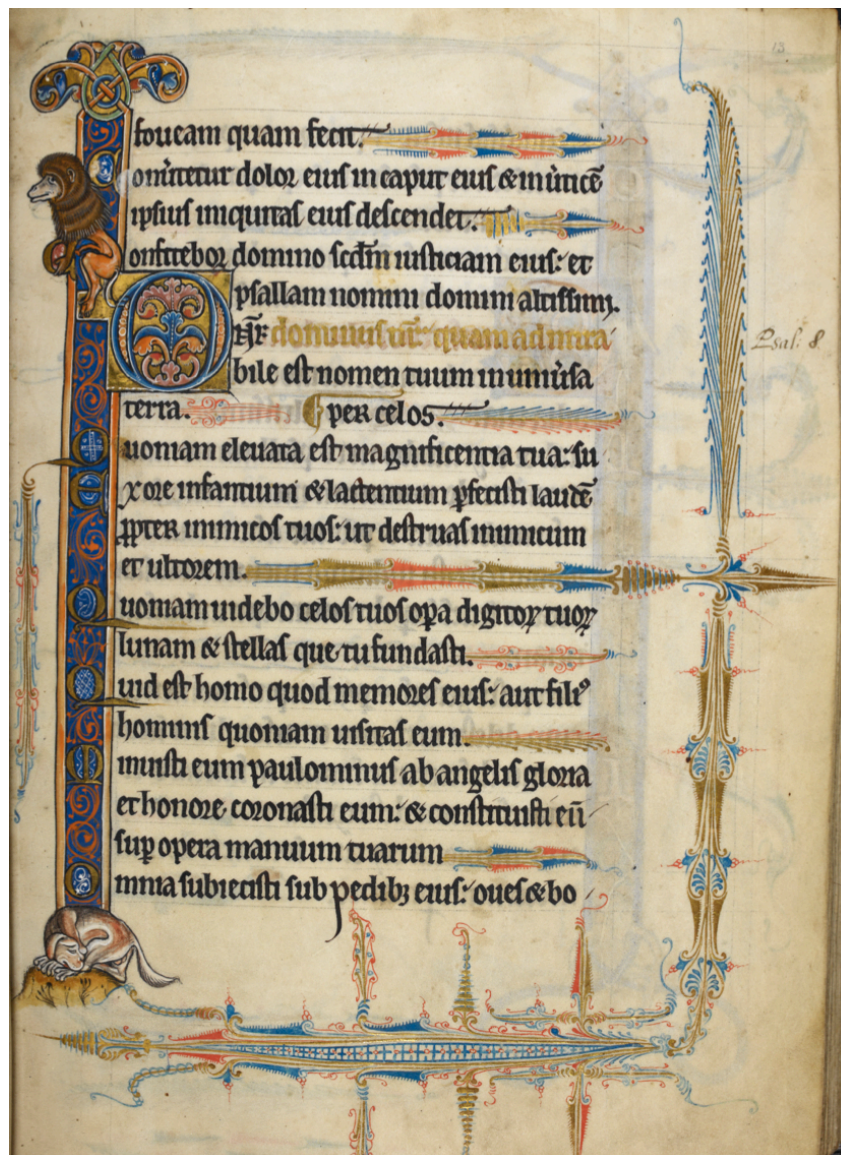 13
foueam quam fecit.
Conũtetur dolor eius in caput eius & in ũticē
ipsius iniquitas eius descendet.
Confitebor domino scdm̄ iusticiam eius: et
psallam nomini domini altissimi.
dominus nr̄: quam admira
Psal: 8
bile est nomen tuum in uniũsa
terra. per celos.
Quoniam eleuata est magnificentia tua: su
Ex ore infantium & lactentium ꝑfecisti laudē
ꝓpter inimicos tuos: ut destruas inimicum
et ultorem.
Quoniam uidebo celos tuos oꝑa digitoꝝ tuoꝝ
lunam & stellas que tu fundasti.
Quid est homo quod memores eius: aut filiꝰ
hominis quoniam uisitas eum.
Minuisti eum paulominus ab angelis gloria
et honore coronasti eum: & constituisti eū
suꝑ opera manuum tuarum
Omnia subiecisti sub pedibꝫ eius: oues & bo